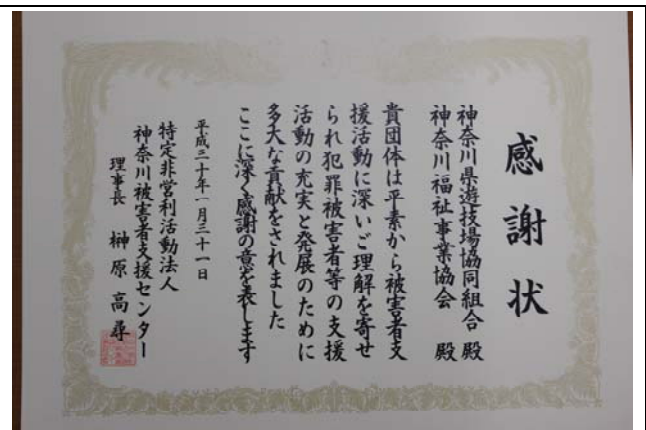 感謝状
神奈川県遊技場協同組合 殿
神奈川福祉事業協会 殿
貴団体は平素から被害者支
援活動に深いご理解を寄せ
られ犯罪被害者等の支援
活動の充実と発展のために
多大な貢献をされました
ここに深く感謝の意を表します
平成三十年一月三十一日
特定非営利活動法人
神奈川被害者支援センター
理事長 榊原高尋